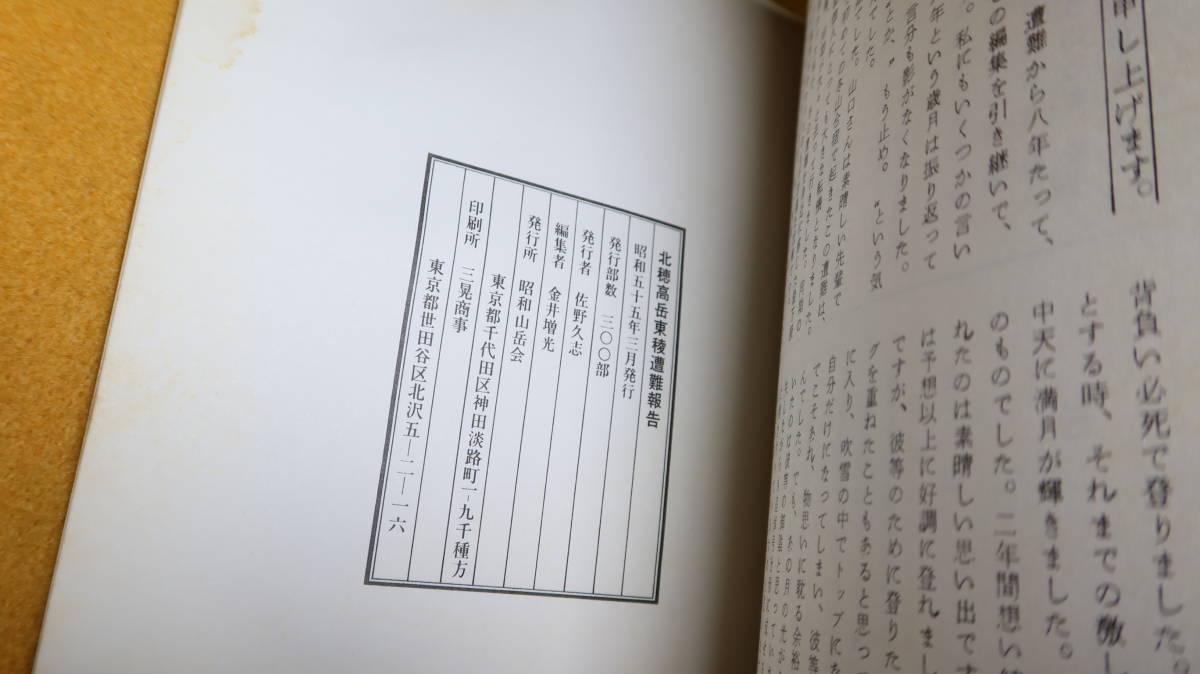 申し上げます。
遭難から八年たって、
の編集を引き継いで、
。私にもいくつかの言い
年という歳月は振り返って
言分も影がなくなりました。
とか、"もう止め。"という気
でした。山口さんは素晴しい先輩で
背負い必死で登りました。
とする時、それまでの
中天に満月が輝きました。
のものでした。二年間想い
れたのは素晴しい思い出です
は予想以上に好調に登れまし
ですが、彼等のために登りた
グを重ねたこともあると思っ
に入り、吹雪の中でトップにな
自分だけになってしまい、彼等
でこそあれ、物思いに耽る余裕
んでした。でも、あの月の光が
北穂高岳東稜遭難報告
昭和五十五年三月発行
発行部数 三〇〇部
発行者 佐野久志
編集者 金井増光
発行所 昭和山岳会
東京都千代田区神田淡路町一-九千種方
印刷所 三晃商事
東京都世田谷区北沢五-二-一六